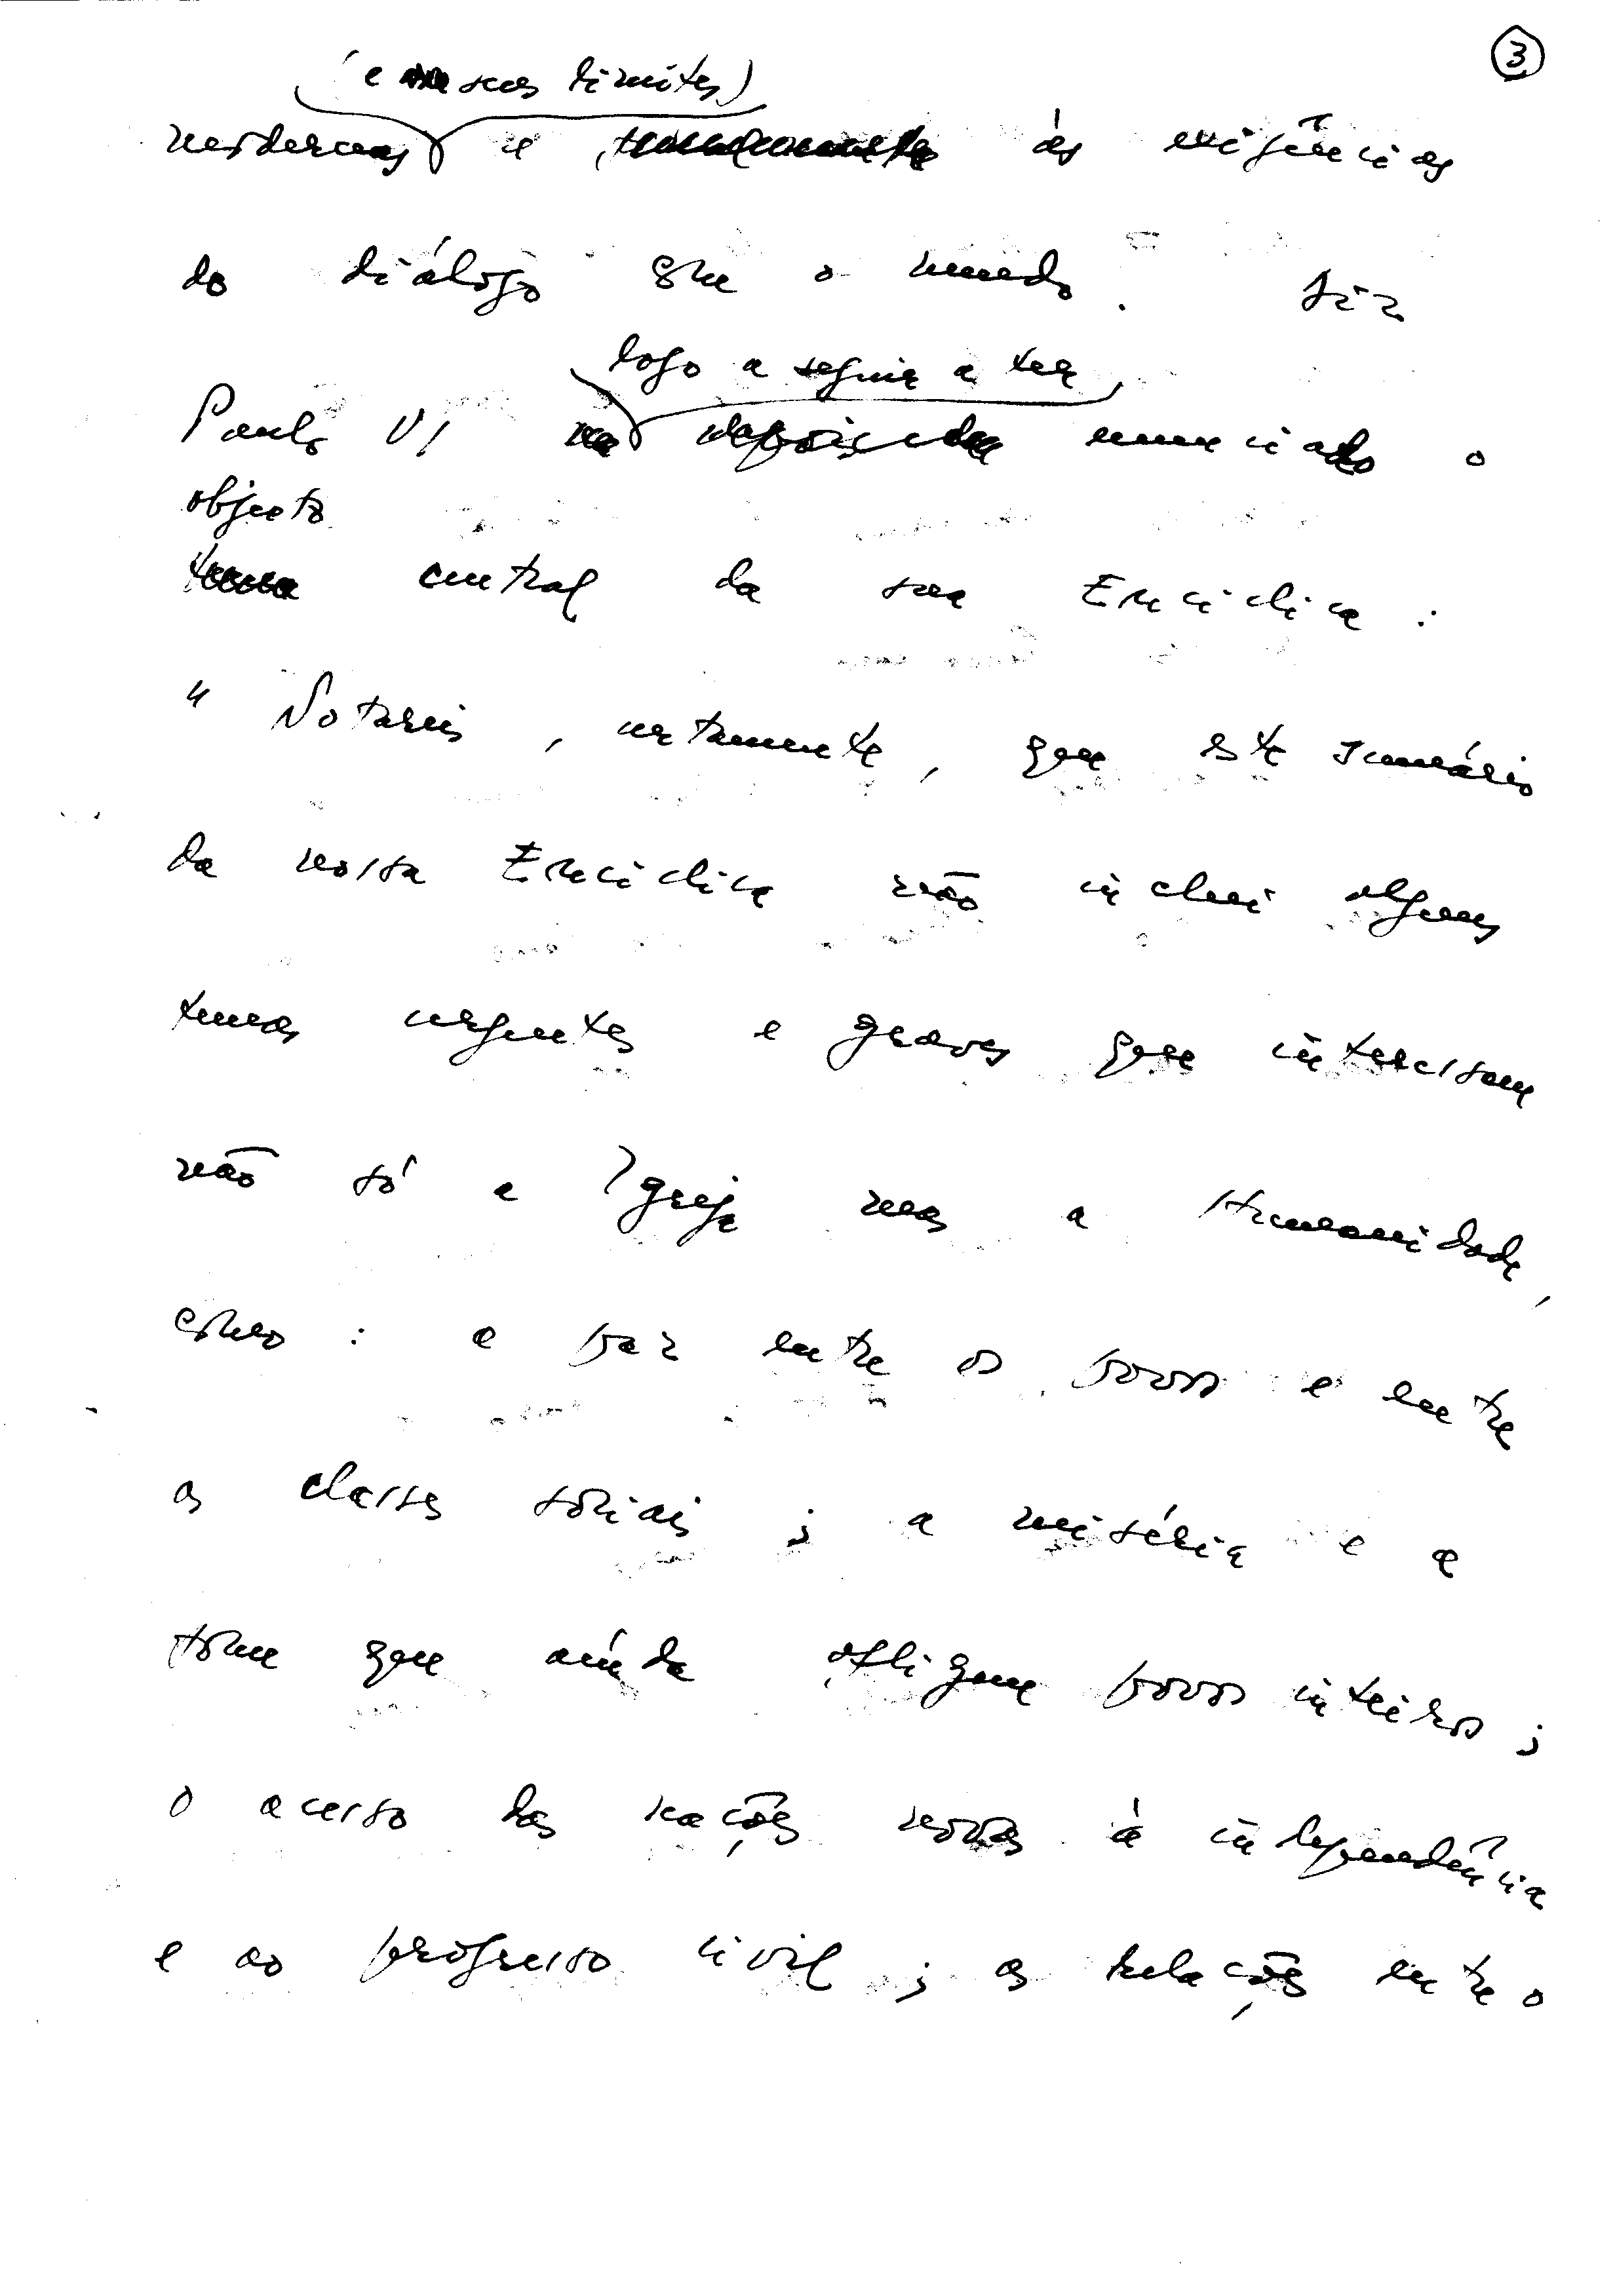 3
(e seus limites)
modernas e às exigências
do diálogo com o mundo. Diz
logo a seguir a ter
Paulo VI enunciado o
objecto
central da sua Encíclica:
" Notareis, certamente, que este sumário
da nossa Encíclica não inclui alguns
temas urgentes e graves que interessam
não só a Igreja mas a Humanidade,
como: a paz entre os povos e entre
as classes sociais; a miséria e a
fome que ainda afligem povos inteiros;
o acesso das nações novas à independência
e ao progresso civil; as relações entre o